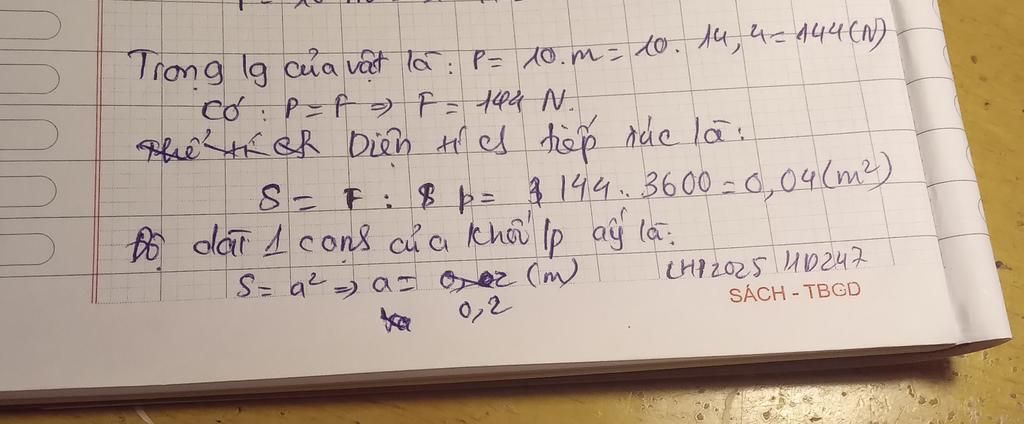 Trọng lg của vật là: P = 10.m = 10. 14,4 = 144 (N)
Có: P = F => F = 144 N.
Diện tích tiếp xúc là:
S = F : p = 144 : 3600 = 0,04 (m²)
Độ dài 1 cạnh của khối lp ấy là:
S = a² => a = 0,02 (m)
0,2
CHP2025 HD247
SÁCH - TBGD